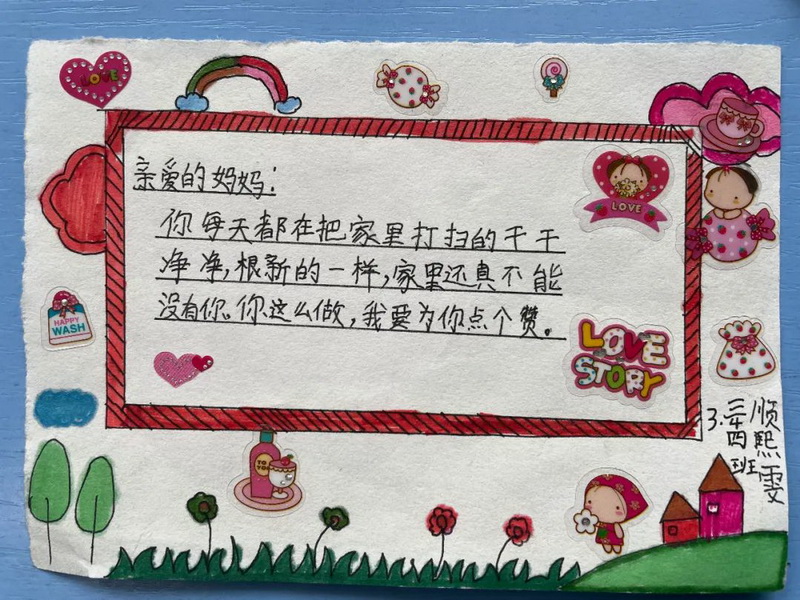 LOVE
亲爱的妈妈:
你每天都在把家里打扫的干干
净净,根新的一样,家里还真不能
没有你。你这么做,我要为你点个赞。
LOVE
LOVE
STORY
HAPPY
WASH
TO
YOU
3.
三四班
顺熙雯